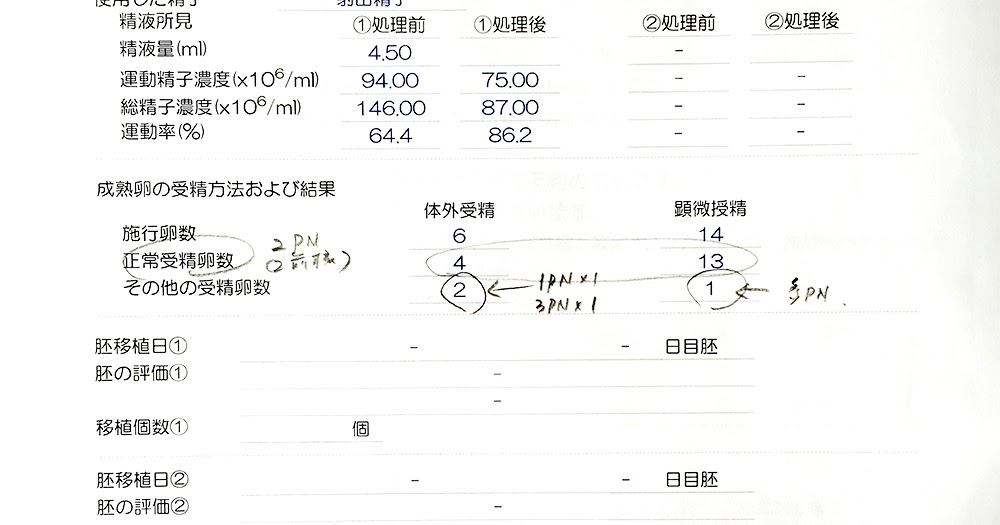 使用した精子 射出精子
精液所見 ①処理前 ①処理後 ②処理前 ②処理後
精液量(ml) 4.50 -
運動精子濃度(x10⁶/ml) 94.00 75.00 - -
総精子濃度(x10⁶/ml) 146.00 87.00 - -
運動率(%) 64.4 86.2 - -
成熟卵の受精方法および結果
体外受精 顕微授精
施行卵数 6 14
2PN
正常受精卵数 4 13
その他の受精卵数 2 1
1PN×1
3PN×1
PN
胚移植日① - - 日目胚
胚の評価① -
-
移植個数① 個
胚移植日② - - 日目胚
胚の評価② -